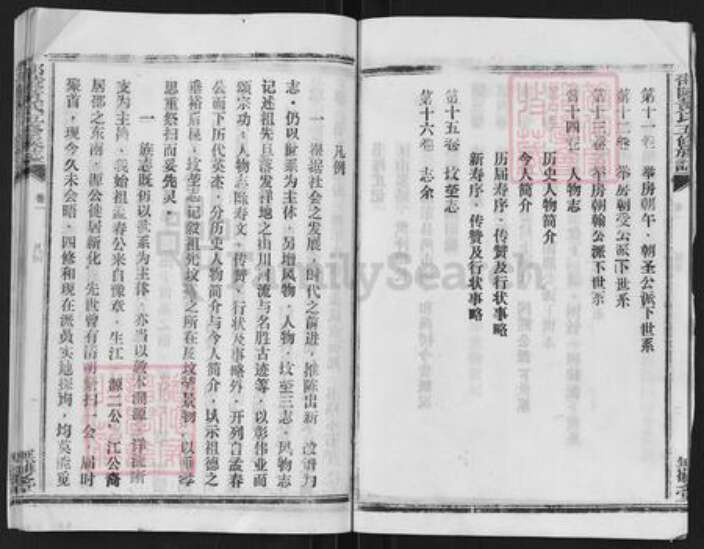 第十一卷 举房朝午·朝圣公派下世系
第十二卷 举房朝受公派下世系
第十三卷 举房朝翰公派下世系
第十四卷 人物志
历史人物简介
今人简介
历届寿序·传赞及行状事略
新寿序·传赞及行状事略
第十五卷 坟茔志
第十六卷 志余
凡例
一 根据社会之发展·时代之前进·推陈出新 改谱为
志·仍以世系为主体·另增风物·人物·坟茔三志·风物志
记述祖先旦落发祥地之山川河流与名胜古迹等·以彰伟业而
颂宗功·人物志除寿文·传赞·行状及事略外·开列自孟春
公而下历代英杰·分历史人物简介与今人简介·以示祖德之
垂裕后昆·坟茔志记毅祖先坟墓之所在及坟茔景物·以
思重祭扫而妥先灵。
一 族志既仍以世系为主体·亦当以敦本溯源
支为主 我始祖孟春公来自豫章·生江 源二公·江公裔
居邵之东南·源公徙居新化 先世曾有清明祭扫一会 届时
聚首·现今久未会晤·四修和现在派员实地探询·均莫能觅
FamilySearch